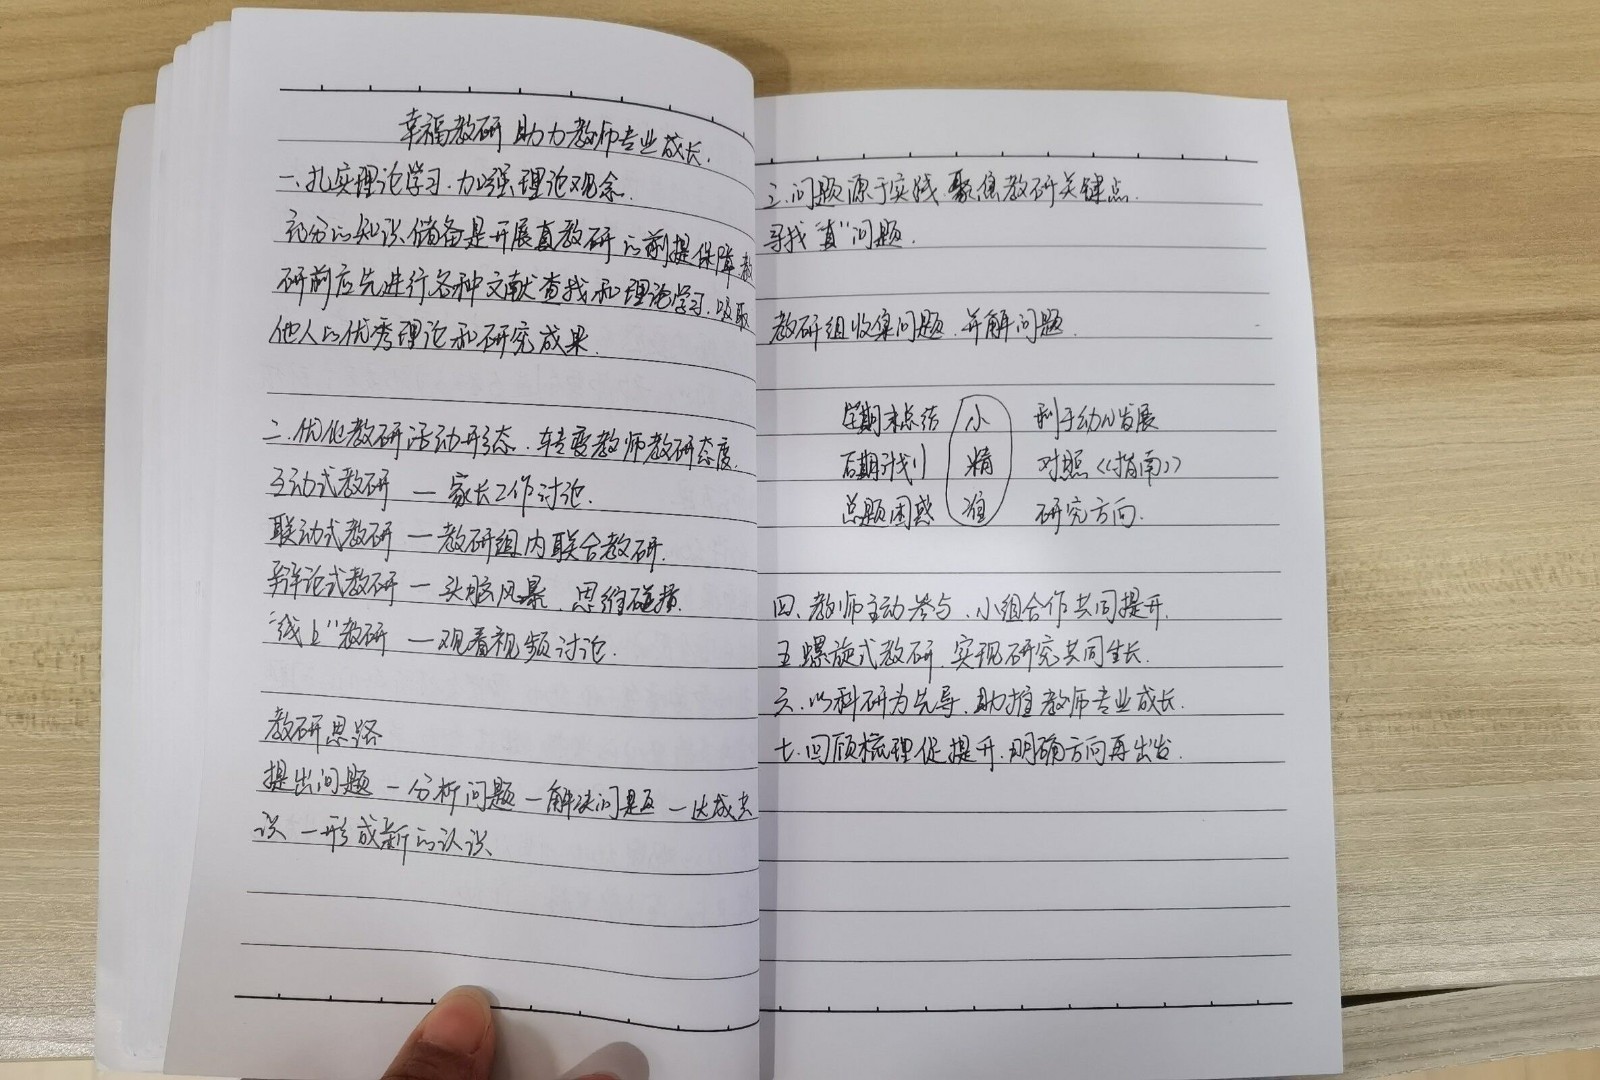 幸福教研 助力教师专业成长.
一、扎实理论学习.加强理论观念.
充分的知识储备是开展真教研的前提保障 教
研前应先进行各种文献查找和理论学习.吸取
他人的优秀理论和研究成果.
二.优化教研活动形态.转变教师教研态度.
互动式教研 — 家长工作讨论.
联动式教研 — 教研组内联合教研.
辩论式教研 — 头脑风暴 思维碰撞.
"线上"教研 — 观看视频讨论.
教研思路
提出问题 — 分析问题 — 解决问题 — 达成共
识 — 形成新的认识
三.问题源于实践 聚焦教研关键点.
寻找"真"问题.
教研组收集问题.并解问题.
学期末总结 小 利于幼儿发展
后期计划 精 对照《指南》
总题困惑 准 研究方向.
四.教师主动参与.小组合作共同提升.
五.螺旋式教研 实现研究共同生长.
六.以科研为先导.助推教师专业成长.
七.回顾梳理促提升.明确方向再出发.